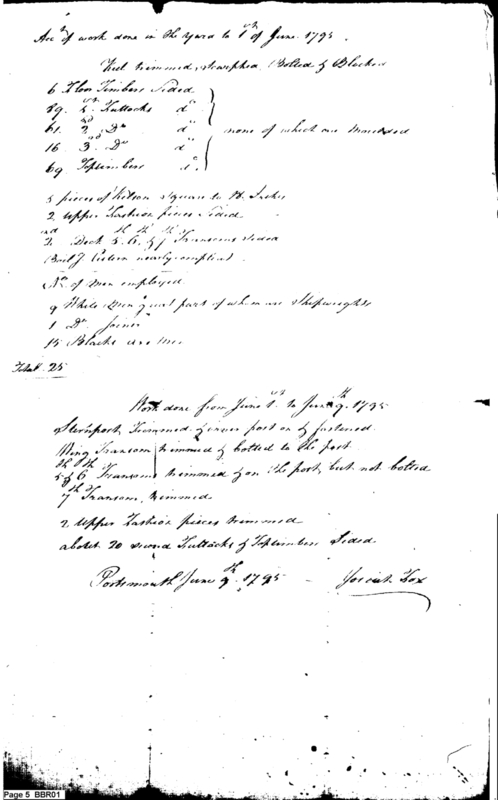 Acct of work done in the Yard to 1st of June 1795.
Keel trimmed, scarphed, Bolted & Blocked
6 Floor Timbers Sided
1st Futtocks do
61 2nd Do do
none of which are moulded
16 3rd Do do
69 Toptimbers do
5 pieces of Kelson square to Inches
2 Upper Fashion pieces Sided
2nd Deck 5. 6. & 7 Transoms sided
nearly complicated
No of Men employed
9 White Men great part of whom are Shipwrights
1 Do Joiner
15 Blacks
Total 25
Work done from June 1st to June 9th 1795
Sternpost Trimmed & inner post on & fastened
Wing Transom trimmed & bolted to the post
5th & 6th Transoms trimmed & on the post, but not bolted
7th Transom trimmed
2 Upper Fashion pieces trimmed
about 20 second Futtocks & Toptimbers Sided.
Portsmouth June 9th 1795 – Josiah Fox
Page 5 BBR01